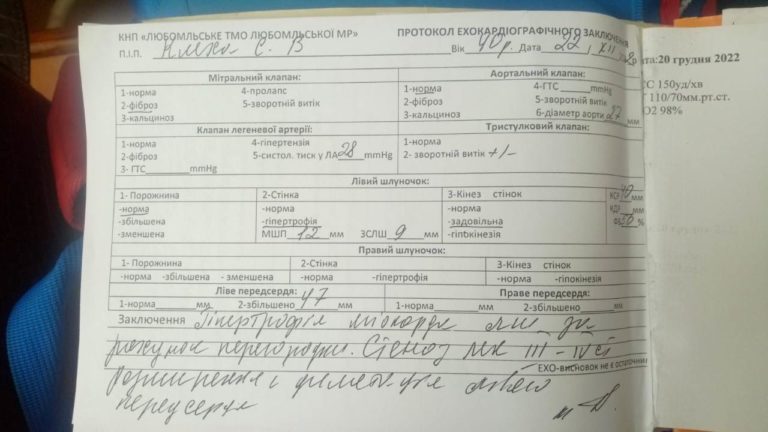 КНП «ЛЮБОМЛЬСЬКЕ ТМО ЛЮБОМЛЬСЬКОЇ МР» ПРОТОКОЛ ЕХОКАРДІОГРАФІЧНОГО ЗАКЛЮЧЕННЯ
П.І.П. С. В Вік 40р. Дата 22
та:20 грудня 2022
Мітральний клапан:
1-норма 4-пролапс
2-фіброз 5-зворотній витік
3-кальциноз
Аортальний клапан:
1-норма 4-ГТС mmHg
2-фіброз 5-зворотній витік
3-кальциноз 6-діаметр аорти 27 мм
СС 150уд/хв
Т 110/70мм.рт.ст.
О2 98%
Клапан легеневої артерії:
1-норма 4-гіпертензія
2-фіброз 5-систол. тиск у ЛА 28 mmHg
3- ГТС mmHg
Тристулковий клапан:
1-норма
2- зворотній витік +/-
Лівий шлуночок:
1- Порожнина 2-Стінка 3-Кінез стінок КСР мм
-норма -норма -норма КДР мм
-збільшена -гіпертрофія -задовільна ФВ 50 %
-зменшена МШП 12 мм ЗСЛШ 9 мм -гіпокінезія
Правий шлуночок:
1- Порожнина 2-Стінка 3-Кінез стінок
-норма -збільшена - зменшена -норма -гіпертрофія -норма -гіпокінезія
Ліве передсердя: 47 Праве передсердя:
1-норма мм 2-збільшено мм 1-норма мм 2-збільшено мм
Заключення Гіпертрофія міокарда лш за
рахунок перегородки. Стеноз МК III - IV ст
ЕХО-висновок не є остаточним
Розширення і лівого
передсердя